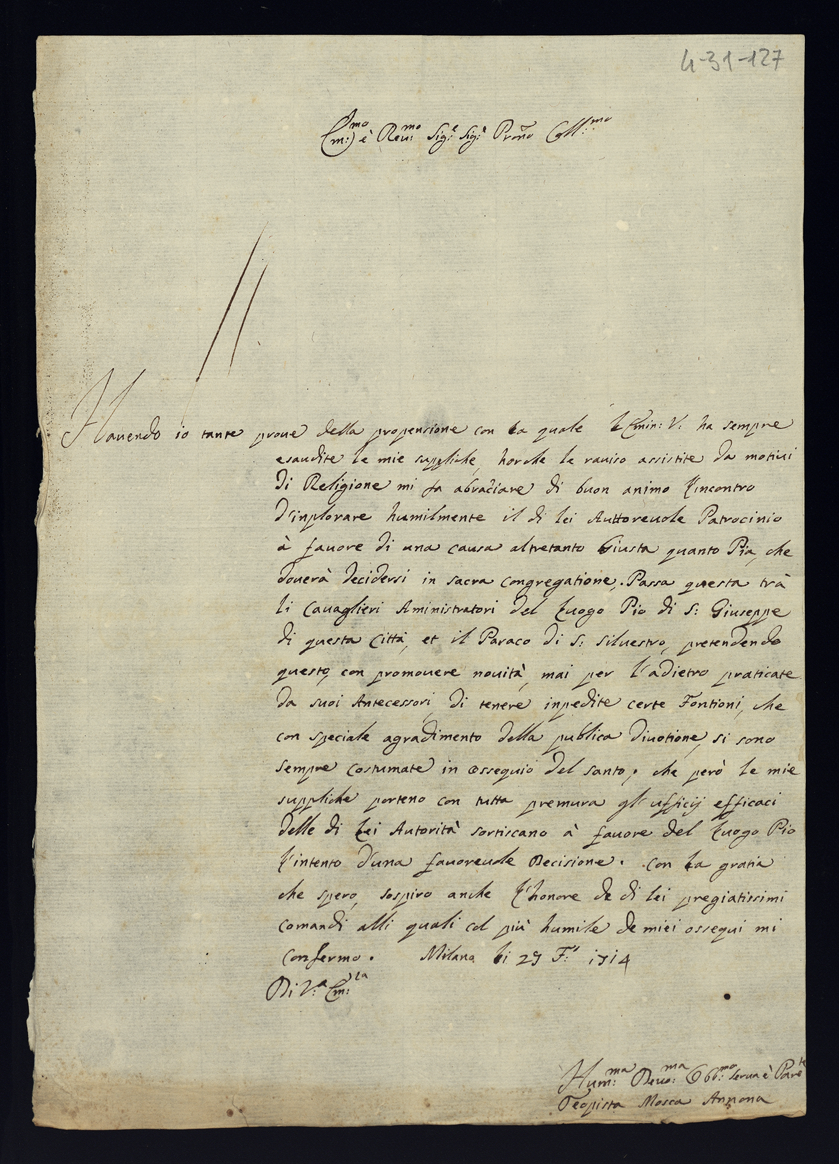 4-31-127
Em:mo è Reu:mo Sig:r Sig:r Prõne Coll:mo
Hauendo io tante proue della propensione con la quale l'Emin: V: ha sempre
esaudite le mie suppliche, horche le rauiso assistite da motiui
di Religione mi fa abraciare di buon animo l'incontro
d'inplorare humilmente il di lei Auttoreuole Patrocinio
à fauore di una causa altretanto Giusta quanto Pia, che
douerà decidersi in sacra congregatione. Passa questa trà
li Cauaglieri Aministratori del Luogo Pio di S: Giuseppe
di questa Città, et il Paraco di S: Siluestro, pretendendo
questo, con promouere nouità, mai per l'adietro praticate
da suoi Antecessori, di tenere inpedite certe Fontioni, che
con speciale agradimento della publica Diuotione, si sono
sempre costumate in ossequio del santo, che però le mie
suppliche porteno con tutta premura gl'ufficij efficaci
delle di lei Autorità sortiscano à fauore del Luogo Pio
l'intento d'una fauoreuole Decisione. Con la gratia
che spero, sospiro anche l'honore de di lei pregiatissimi
comandi alli quali col più humile de miei ossequi mi
confermo. Milano li 29 1714
Di V:a Em:za
Hum:ma Deuo:ma Obb:mo serua è Paren:te
Teopista Mosca Annona